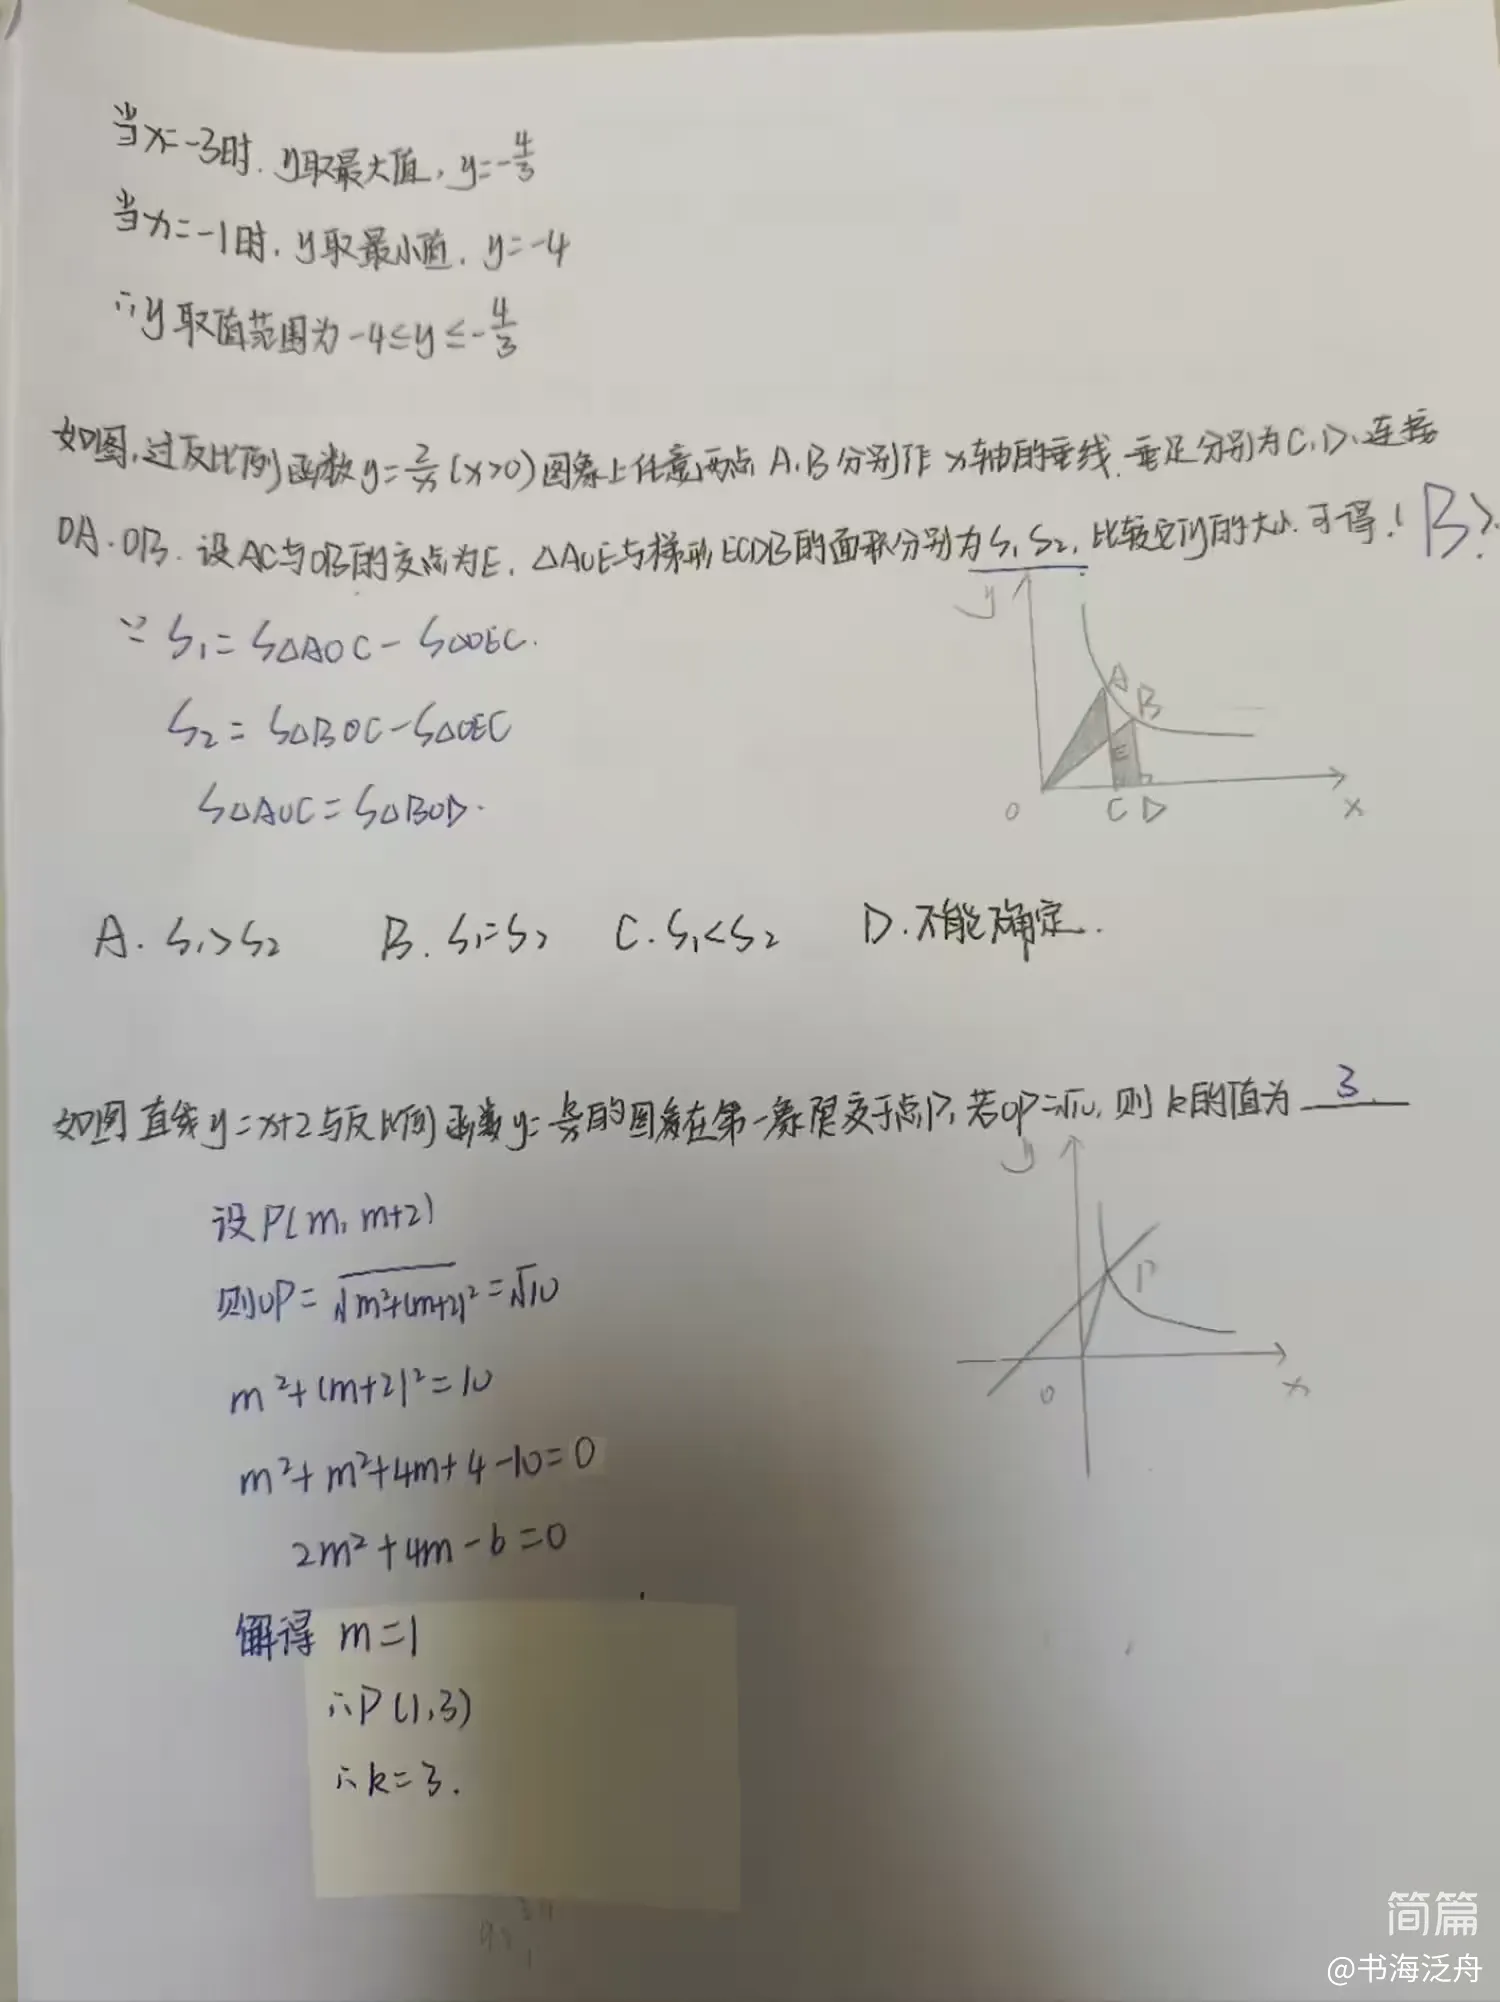 当x=-3时，y取最大值，y=-4/3
当x=-1时，y取最小值，y=-4
∴y取值范围为-4≤y≤-4/3
如图，过反比例函数y=2/x(x>0)图象上任意两点A、B分别作x轴的垂线，垂足分别为C、D、连接
OA、OB．设AC与OB的交点为E，△AOE与梯形ECDB的面积分别为S₁ S₂，比较它们的大小可得！(B)
∵S₁=S△AOC-S△OEC.
S₂=S△BOC-S△OEC
S△AOC=S△BOD.
y
A
B
E
O C D x
A. S₁>S₂ B. S₁=S₂ C. S₁<S₂ D. 不能确定.
如图 直线y=x+2与反比例函数y=k/x的图象在第一象限交于点P，若OP=√10，则k的值为 3.
y
P
O x
设P(m, m+2)
则OP=√m²+(m+2)²=√10
m²+(m+2)²=10
m²+m²+4m+4-10=0
2m²+4m-6=0
解得 m=1
∴P(1,3)
∴k=3.
简篇
@书海泛舟